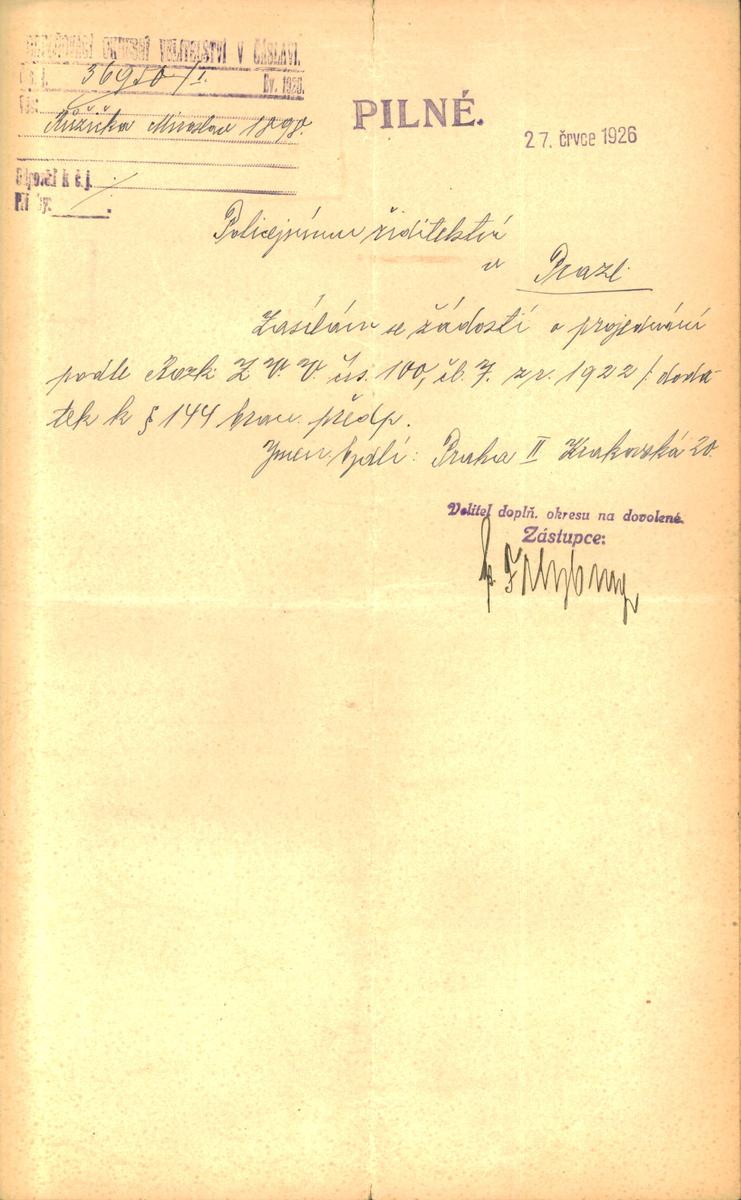 DOPLŇOVACÍ OKRESNÍ VELITELSTVÍ V ČÁSLAVI.
Č. j. 36950/I. Ev. 1926.
Věc:
Růžička Miroslav 1898.
PILNÉ.
27. črvce 1926
Odpověď k č. j.
Přílohy:
Policejnímu ředitelství
v Praze.
Zasílám se žádostí o projednání
podle Rozk. Z. V. V. čís. 100, čl. 7. z r. 1922 /: doda-
tek k § 144 bran. předp.
Jmen. bydlí: Praha II Krakovská 20.
Velitel doplň. okresu na dovolené.
Zástupce: